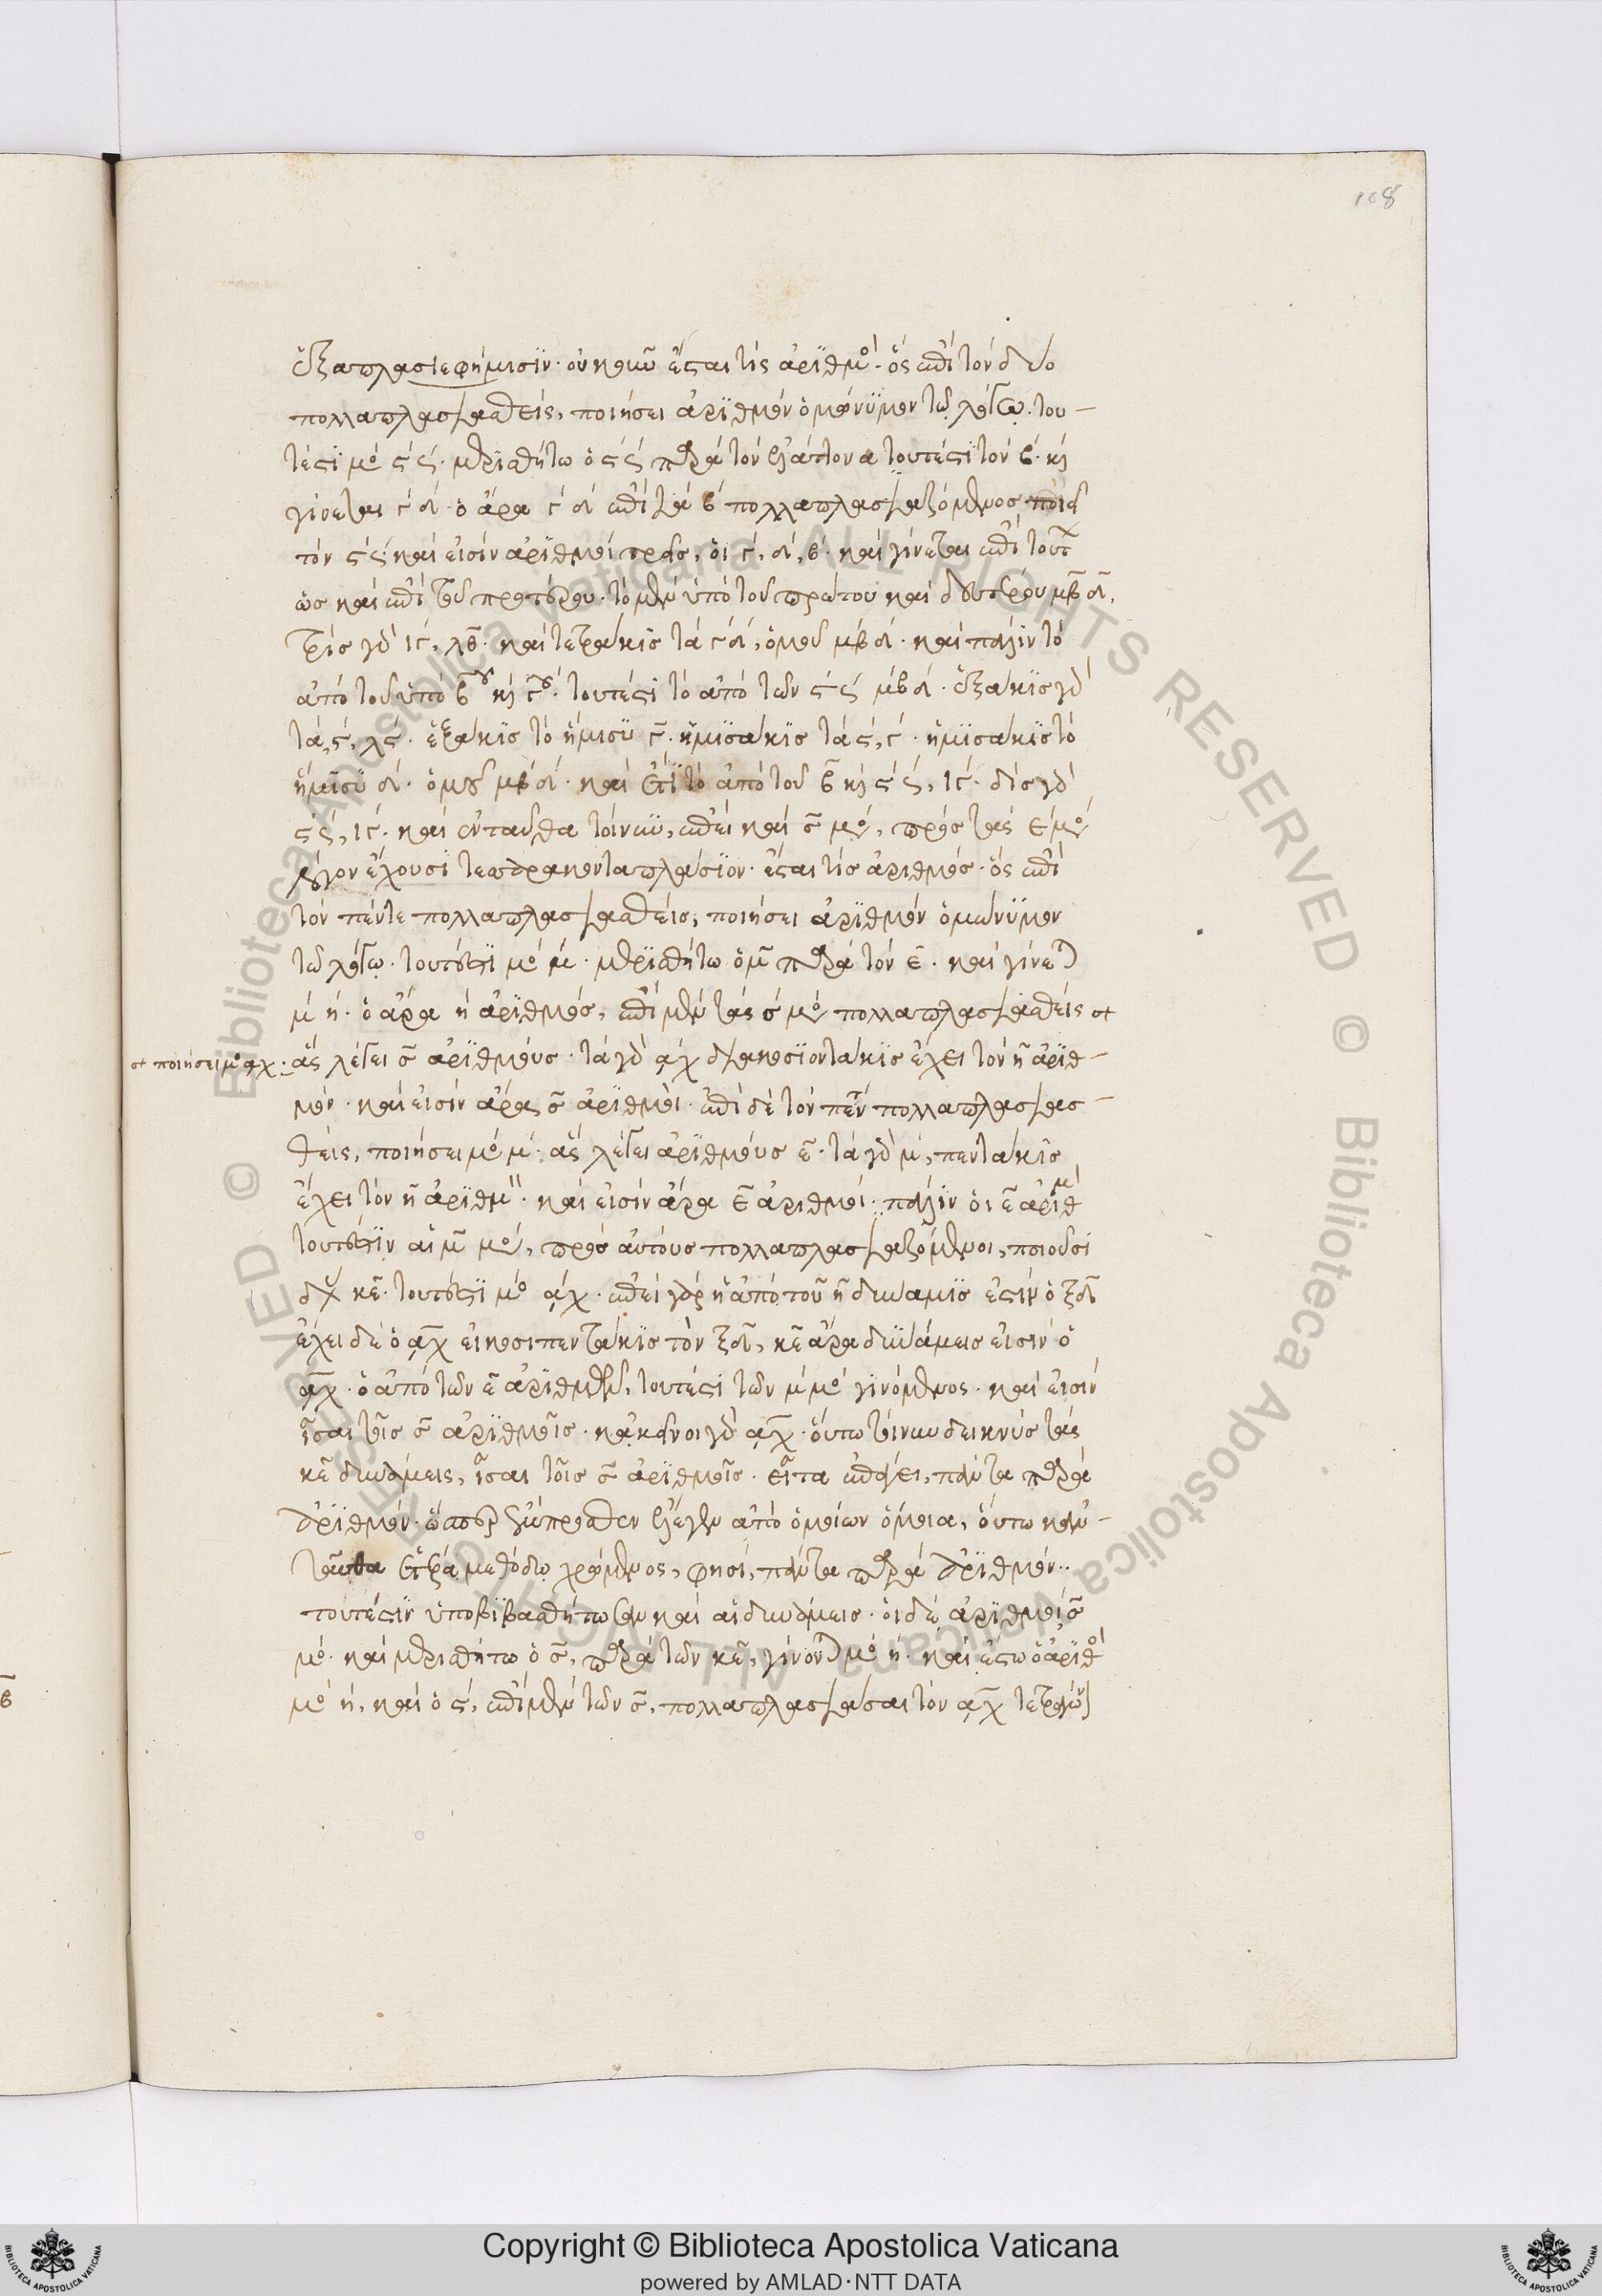 108
ἑξαπλασιεφήμισϊν· οὐκοῦν ἔσται τὶς ἀρϊθμὸ· ὃς ἐπὶ τὸν δύο
πολλαπλασιασθεὶς, ποιήσει ἀρϊθμὸν ὁμώνϋμον τῷ λόγῳ. του-
τέστι μο ϛ ϛ· μερϊσθήτω ὁ ϛ ϛ παρὰ τὸν ἐλάττονα τουτέστι τὸν β· κὶ
γίνεται γ δ· ὁ ἄρα γ δ ἐπὶ τὰ β πολλαπλασιαζόμενος ποιεῖ
τὸν ϛ ϛ· καὶ εἰσὶν ἀρϊθμοὶ τρεῖς, οἱ γ, δ, β· καὶ γίνεται ἐπὶ τούτ
ὡς καὶ ἐπὶ τοῦ προτέρου· τὸ μὲν ὑπὸ τοῦ πρώτου καὶ δευτέρου μβ δ,
τρὶς γὰρ ιγ, λθ· καὶ τετράκϊς τὰ γ δ, ὁμοῦ μβ δ· καὶ πάλϊν τὸ
ἀπὸ τοῦ ὑπὸ β κὶ γ· τουτέστι τὸ ἀπὸ τῶν ϛ ϛ μβ δ· ἑξάκϊς γὰρ
τὰ ϛ, λϛ· ἑξάκϊς τὸ ἥμισϋ γ· ἡμϊσάκϊς τὰ ϛ, γ· ἡμϊσάκϊς τὸ
ἥμϊσϋ δ· ὁμοῦ μβ δ· καὶ ἔτϊ τὸ ἀπὸ τοῦ β κὶ ϛ ϛ, ιγ· δὶς γὰρ
ϛ ϛ, ιγ· καὶ ἐνταῦθα τοίνυν, ἐπεὶ καὶ σ μο, πρὸς τὰς ε μο
λόγον ἔχουσι τεσσρακονταπλάσϊον· ἔσται τὶς ἀριθμὸς· ὃς ἐπὶ
τὸν πέντε πολλαπλασιασθεὶς, ποιήσει ἀρϊθμὸν ὁμώνϋμον
τῷ λόγῳ· τουτέστϊ μο μ· μερϊσθήτω ὁ μ παρὰ τὸν ε· καὶ γίνεται
μ η· ὁ ἄρα η ἀρϊθμὸς, ἐπὶ μὲν τὰς σ μο πολλαπλασιασθεὶς
ποιήσει μο αχ· ἃς λέγει σ ἀρϊθμοὺς· τὰ γὰρ αχ διακοσϊοντάκϊς ἔχει τὸν η ἀρϊθ-
μόν· καὶ εἰσὶν ἄρα σ ἀρϊθμοὶ· ἐπὶ δὲ τὸν πέντ πολλαπλασιασ-
θεὶς, ποιήσει μο μ· ἃς λέγει ἀρϊθμοὺς ε· τὰ γὰρ μ, πεντάκϊς
ἔχει τὸν η ἀρϊθμ· καὶ εἰσὶν ἄρα ε ἀριθμοὶ· πάλϊν οἱ ε ἀριθμ
τουτέστϊν αἱ μ μο, πρὸς αὐτοὺς πολλαπλασιαζόμενοι, ποιοῦσι
δυ κε· τουτέστϊ μο αχ· ἐπεὶ γὰρ ἡ ἀπὸ τοῦ η δυναμϊς ἐστὶν ὁ ξδ
ἔχει δὲ ὁ αχ εἰκοσιπεντάκϊς τὸν ξδ, κε ἄρα δυνάμεις εἰσὶν ὁ
αχ· ὁ ἀπὸ τῶν ε ἀρϊθμῶν, τουτέστι τῶν μ μο γϊνόμενος· καὶ εἰσὶν
ἶσαι τοῖς σ ἀρϊθμοῖς· κἀκεῖνοι γὰρ αχ· οὕτω τοίνυν δεικνὺς τὰς
κε δυνάμεις, ἶσαι τοῖς σ ἀρϊθμοῖς· εἶτα ἐπάγει, πάντα παρὰ
ἀρϊθμόν· ὥσπερ ἔμπροσθεν ἔλεγεν ἀπὸ ὁμοίων ὅμοια, οὕτω κἀν-
ταῦθα ἑτέρᾳ μεθόδῳ χρώμενος, φησὶ, πάντα παρὰ ἀρϊθμόν··
τουτέστϊν ὑποβϊβασθήτωσαν καὶ αἱ δυνάμεις· οἱ δὲ ἀρϊθμοὶ σ
μο· καὶ μερισθήτω ὁ σ, παρὰ τῶν κε, γίνονται μο η· καὶ ἔστω ὁ ἀρϊθ
μο η, καὶ ὁ ϛ, ἐπὶ μὲν τῶν σ, πολλαπλασιάσαι τὸν αχ τετράγω
Copyright © Biblioteca Apostolica Vaticana
powered by AMLAD·NTT DATA